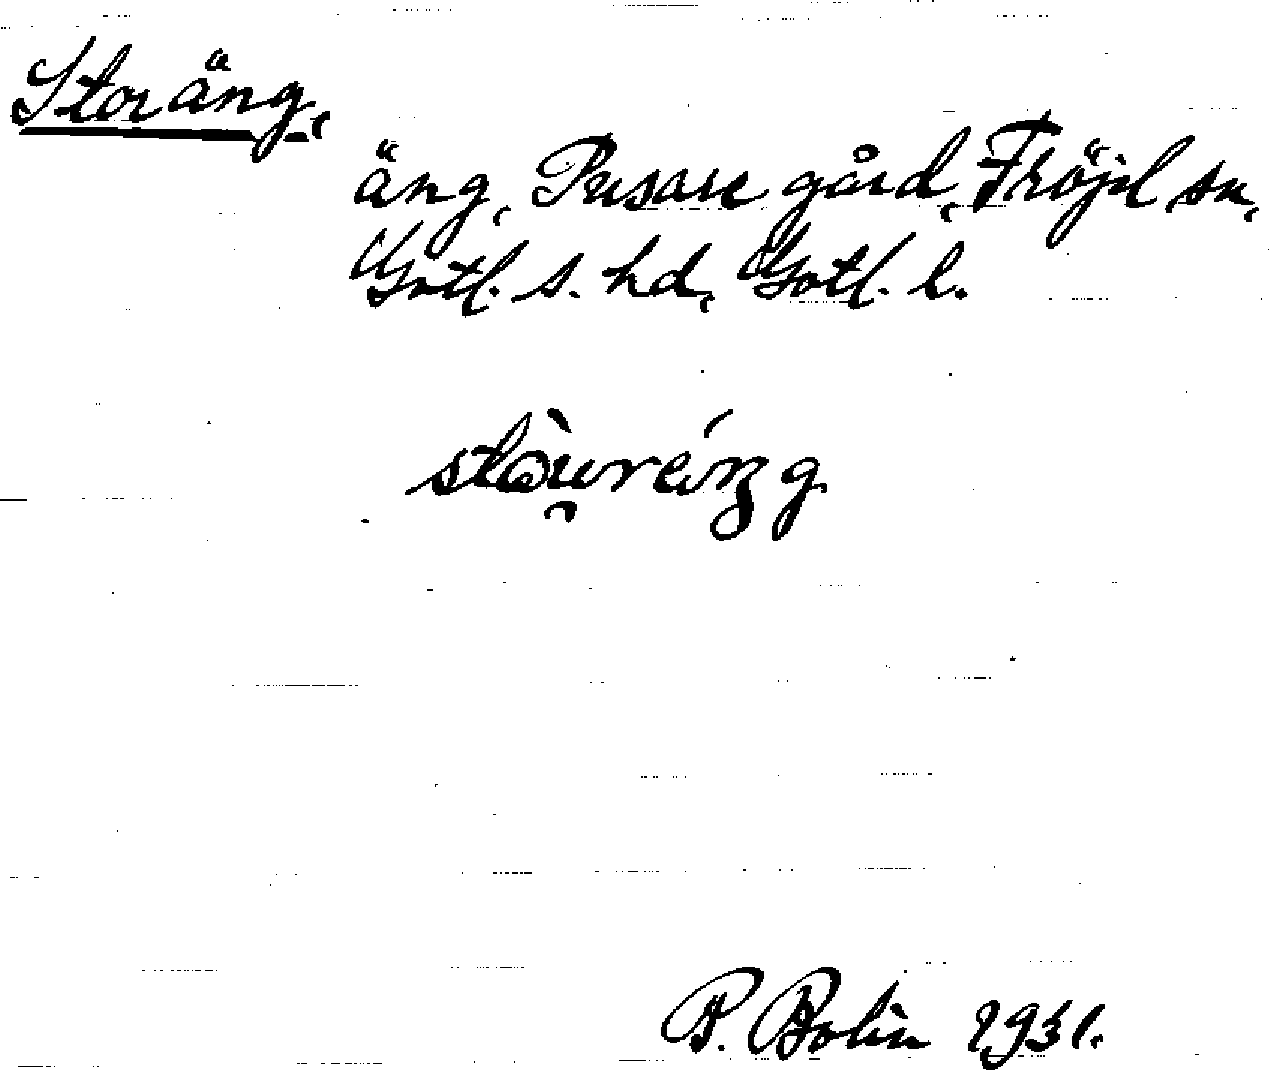 Storäng,
äng, Pusare gård, Fröjel sn,
Gotl. s. hd, Gotl. l.
P. Bolin 1931.